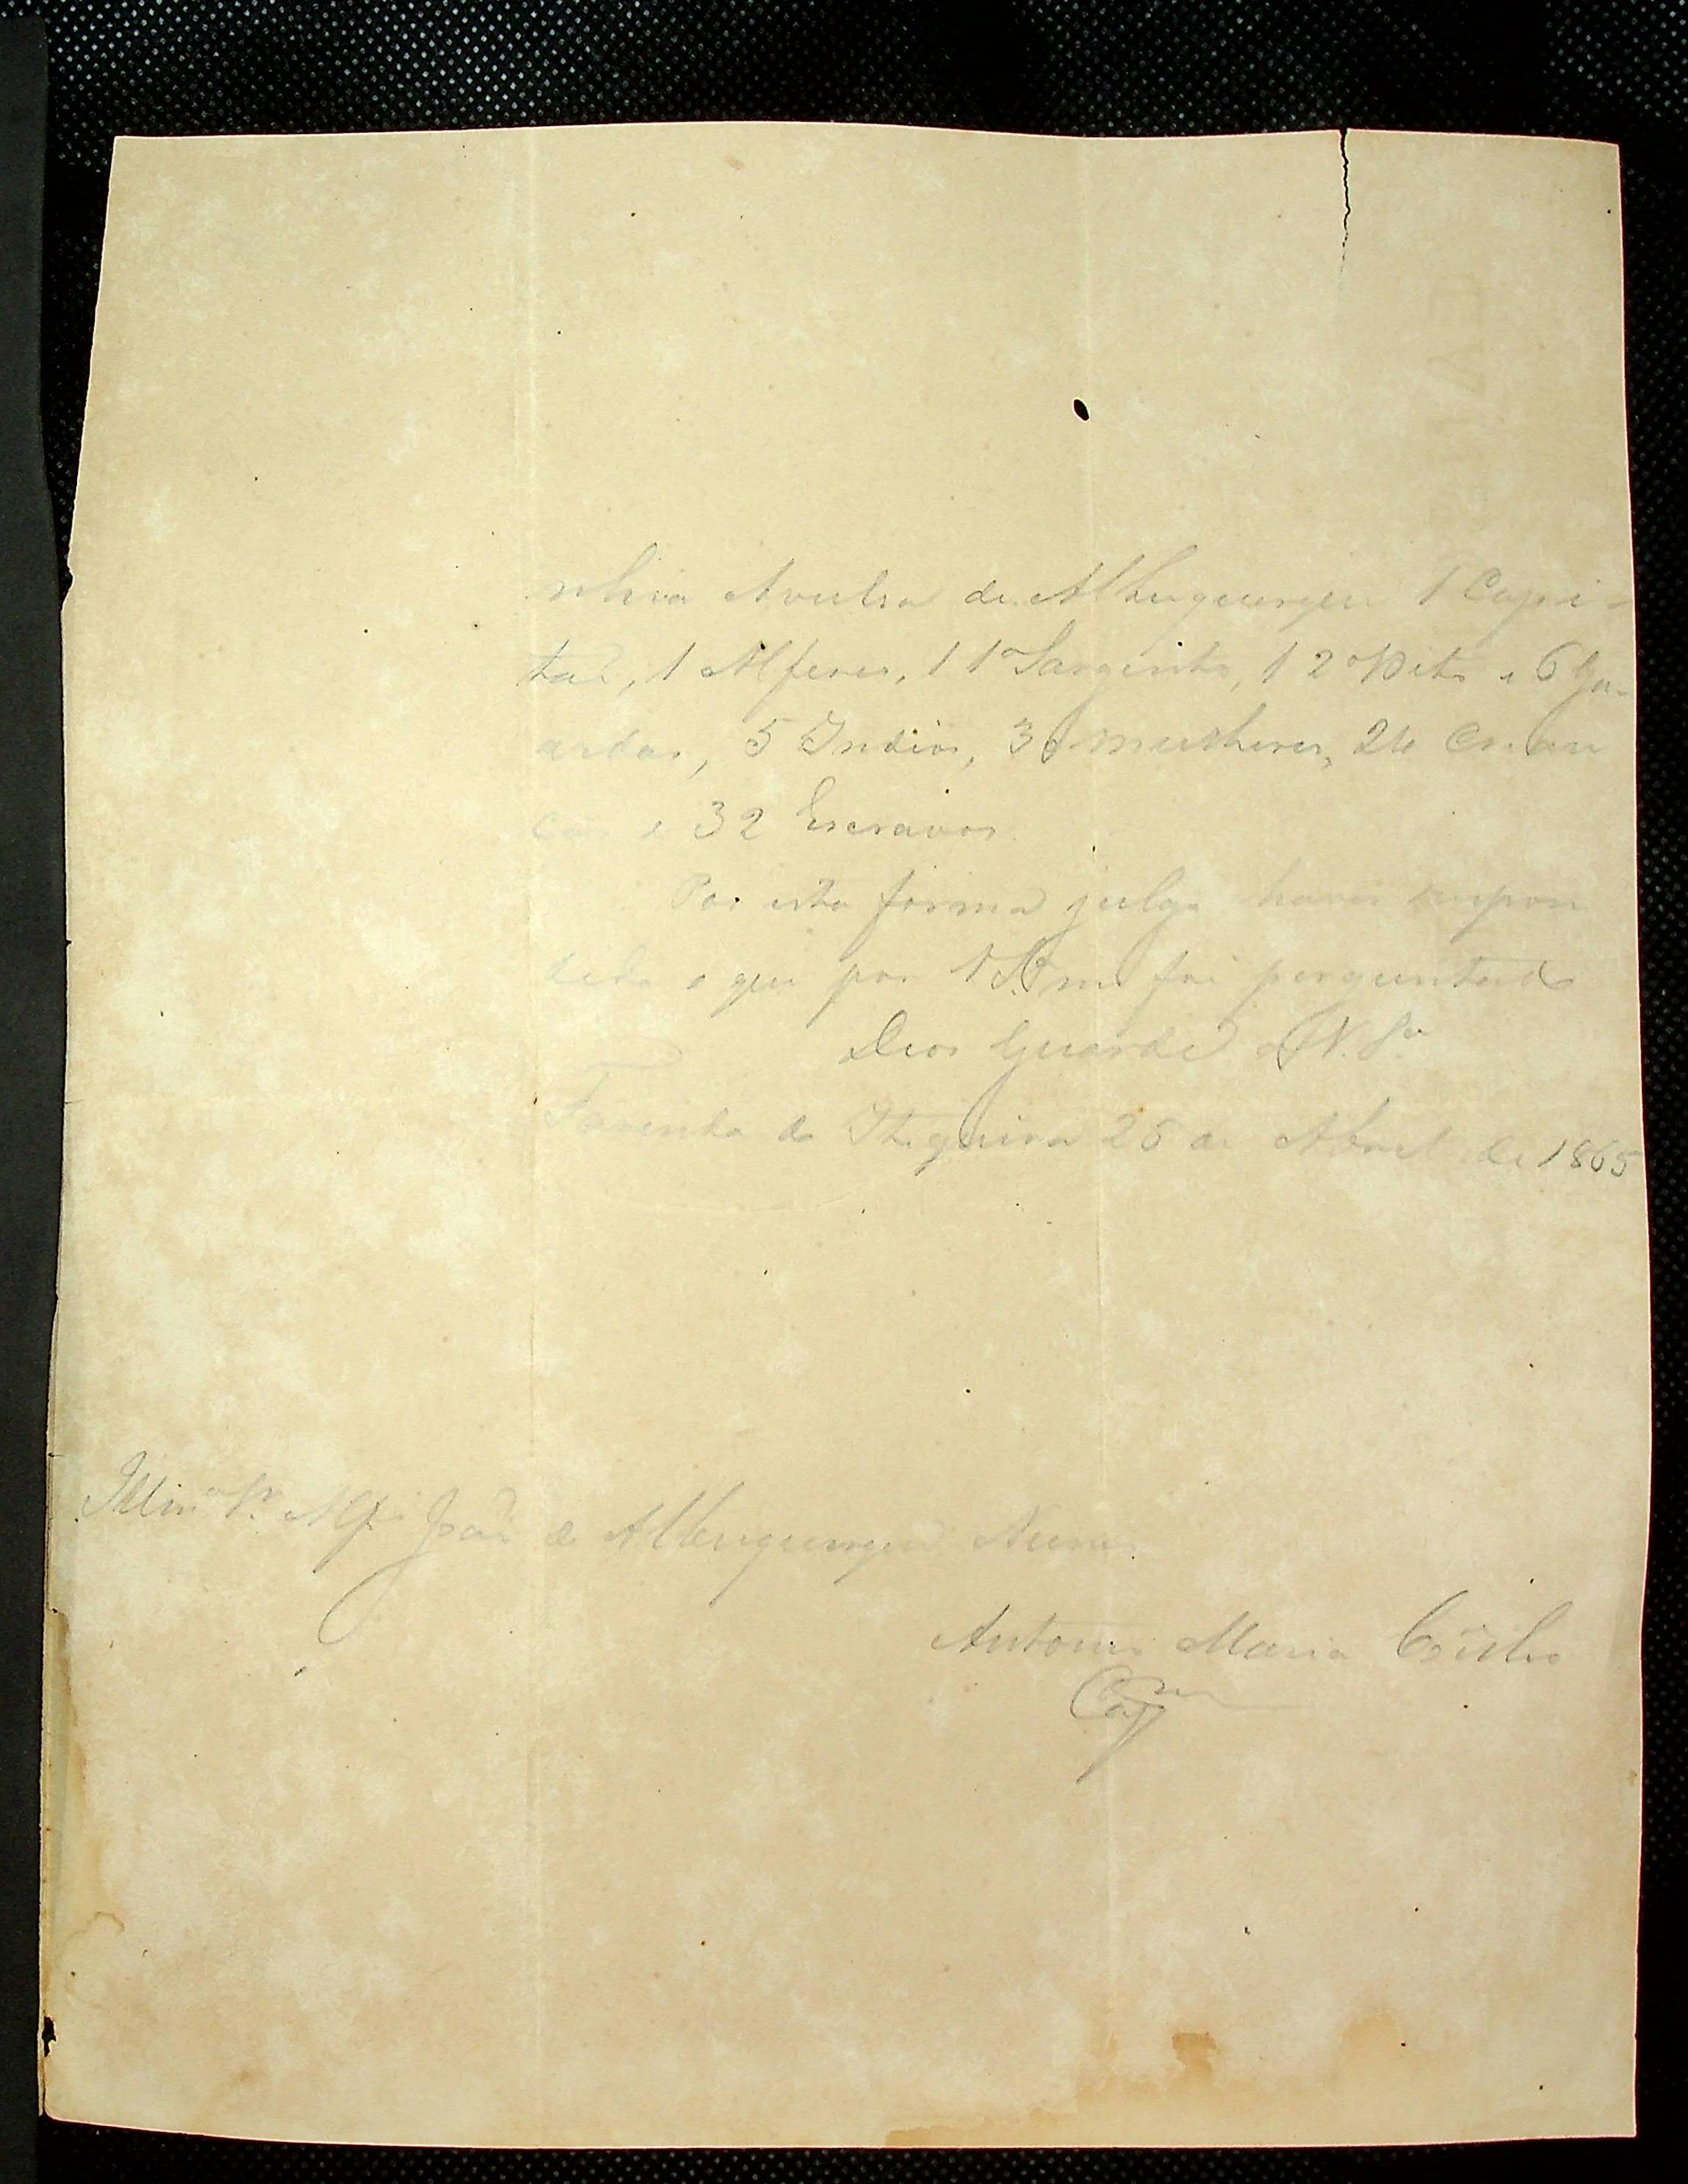 nhia Avulsa de Albuquerque 1 Capi-
tão, 1 Alferes, 1 1º Sargento, 1 2º Dito e 6 Gu-
ardas, 5 Indios, 3 mulheres, 24 Crian
ças e 32 Escravos.
Por esta forma julgo haver respon
dido o que por V.S.ª me foi perguntado
Deos Guarde a V. S.ª
Fazenda do Itiquira 26 de Abril de 1865
Illmº Sr. Alfs João de Albuquerque Nunes
Antonio Maria Coêlho
Capm